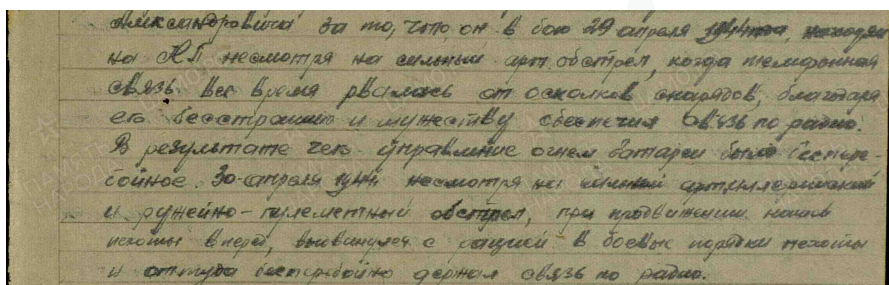 Александровича за то, что, он в бою 29 апреля 1944 года, находясь
на НП несмотря на сильный арт. обстрел, когда телефонная
связь все время рвалась от осколков снарядов, благодаря
его бесстрашию и мужеству обеспечил связь по радио.
В результате чего управление огнем батареи было беспере-
бойное. 30 апреля 1944 несмотря на сильный артиллерийский
и ружейно-пулеметный обстрел, при продвижении нашей
пехоты вперед, выдвинулся с рацией в боевые порядки пехоты
и оттуда бесперебойно держал связь по радио.